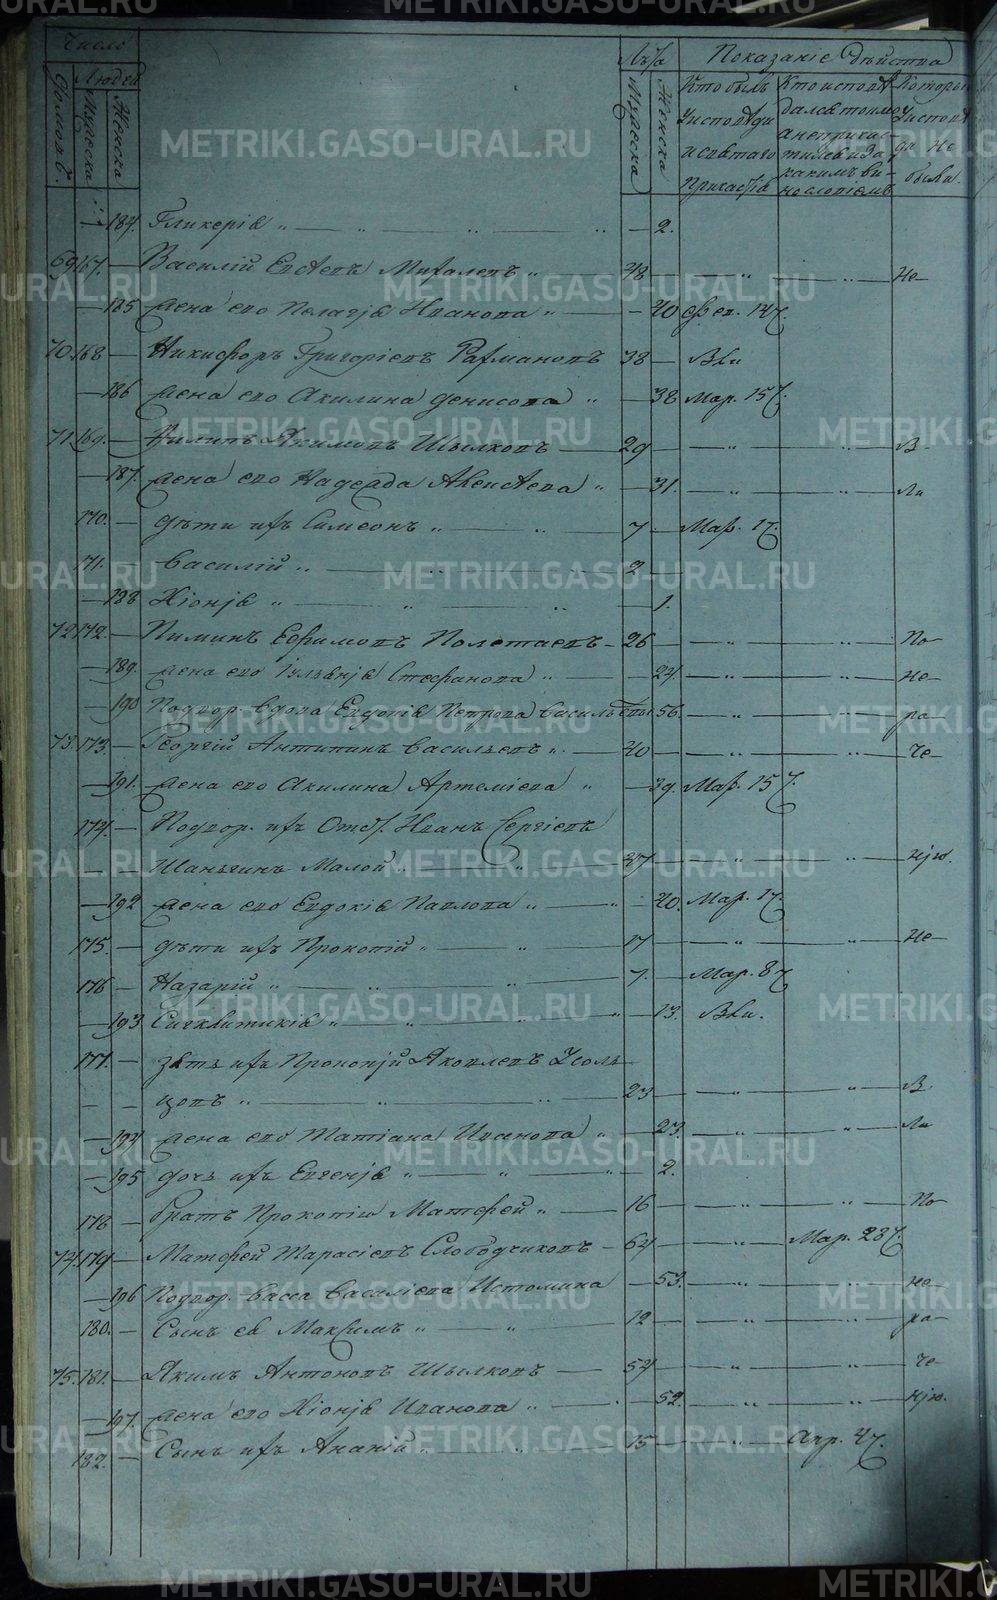 Число Лѣта Показаніе дѣйства
Домовъ. Людей
Мужеска Женска Мужеска Женска
Кто былъ у исповѣди и святаго Причастія
Кто исповѣдался токмо а не причастился и за какимъ винословіемъ
Которыя у исповѣди не были.
184. Гликерія „ — „ — 2.
69. 167. — Василій Евсѣевъ „ — 48 — „ — „ — Не
— 185 жена его Пелагія Иванова „ — 40 Фев. 14.
70. 168 — Никифоръ Григоріевъ Рахмановъ 38 — Вы
— 186 жена его Акилина Денисова „ — 38 Мар. 15.
71. 169. — Филипъ Якимовъ Шылковъ — 29 — „ — „ — В
— 187. жена его Надежда „ — 31. — „ — „ — Ли
170. — дѣти ихъ Симеонъ „ — „ 7 — Мар. 17.
171. — Василій „ — „ 2 —
— 188 Хіонія „ — „ — 1.
72. 172. — Пиминъ Ефимовъ Полетаевъ — 26 — „ — „ — По
— 189. жена его Іуліянія Стефанова „ — 24 — „ — „ — Не
— 190 Подвор. вдова Евдокія Петрова Васильева 56. — „ — „ — ра
73. 173. — Георгій Антипинъ Васильевъ „ — 40 — „ — „ — Че
— 191. жена его Акилина Артеміева „ — 39. Мар. 15.
174. — Подвор. ихъ Отст. Иванъ Сергіевъ
Шаньгинъ Малой „ — 47 — „ — „ — нію.
— 192 жена его Евдокія Павлова „ — 40. Мар. 17.
175. — дѣти ихъ Прокопій „ — „ 17 — „ — „ — Не
176 — Назарій „ — „ 7. — Мар. 8
— 193 Сигклитикія „ — „ — 13. Вы.
177. — зять ихъ Прокопій Яковлевъ Усоль
цовъ „ — „ 23 — „ — „ — В
— 194 жена его Татіана Иванова „ — 23. — „ — „ — Ли
— 195 дочь ихъ Евгенія „ — „ — 2.
178 — братъ Прокопія Матфей „ — 16 — „ — „ — По
74. 179 — Матфей Тарасіевъ Слободчиковъ — 64 — „ — Мар. 28.
— 196 Подвор. Васса Василіева Истомина — 53. — „ — „ — не
180. — Сынъ ея Максимъ „ — „ 12 — „ — „ — ра
75. 181. — Якимъ Антоновъ Шылковъ — 54 — „ — „ — че
— 197. жена его Хіонія Иванова „ — 52. — „ — „ — нію.
182. — Сынъ ихъ Ананій „ — „ 15 — „ — Апр. 4.
METRIKI.GASO-URAL.RU